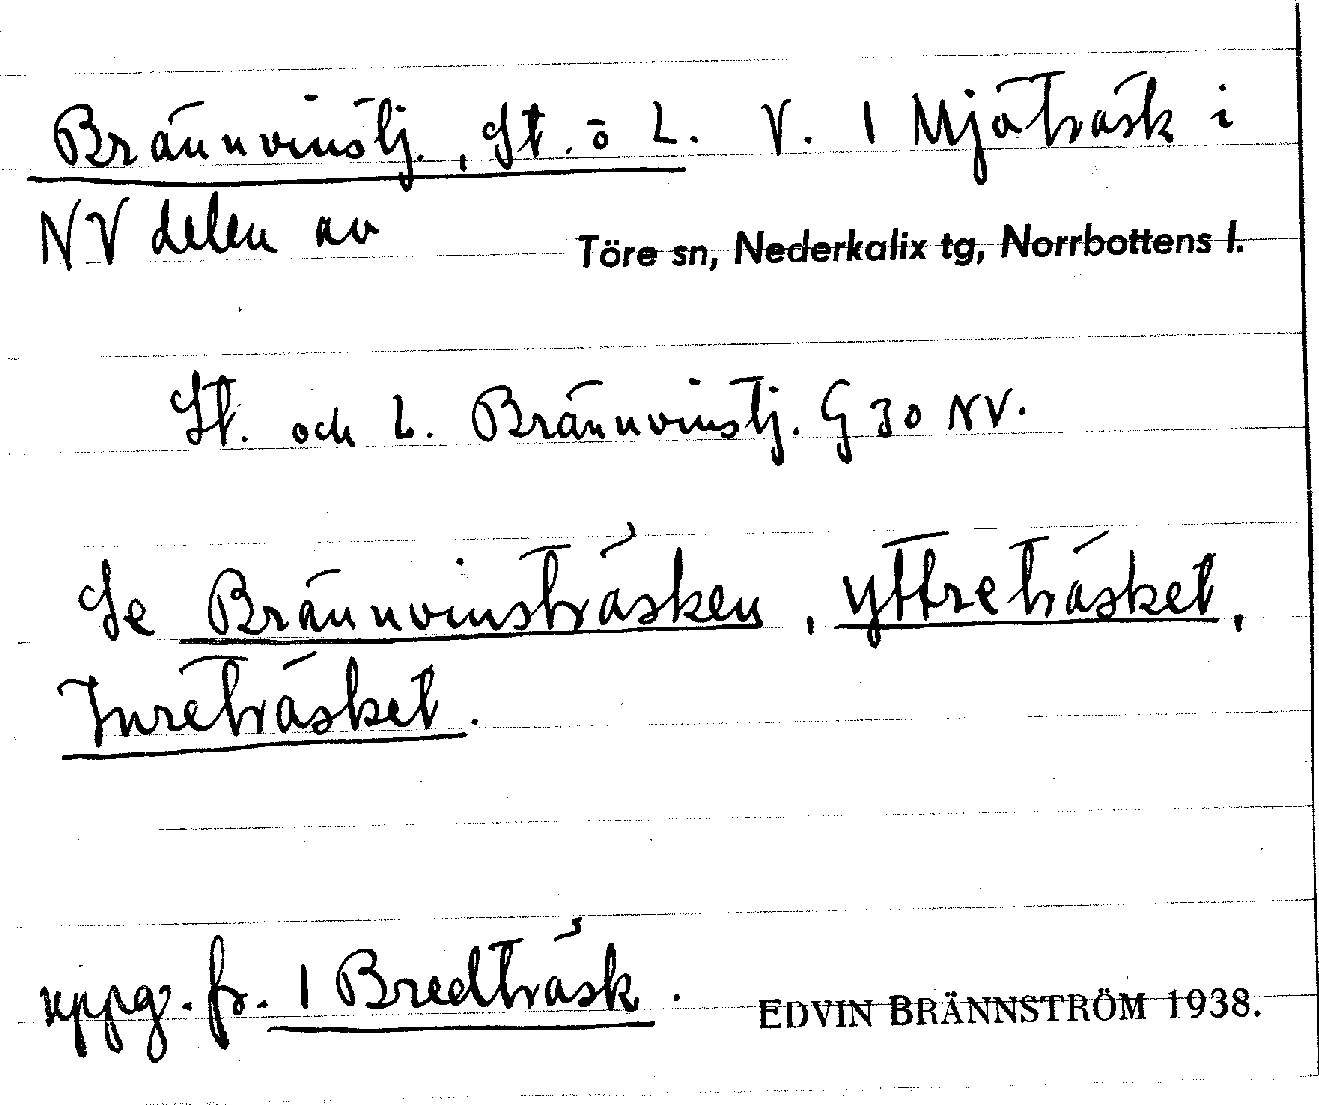 Brännvinstj., St. o L. V. 1 Mjöträsk i
NV delen av
Töre sn, Nederkalix tg, Norrbottens l.
St. och L. Brännvinstj. G 30 NV.
Se Brännvinsträsken, yttreträsket,
Inreträsket.
uppg. fr. 1 Bredträsk.
EDVIN BRÄNNSTRÖM 1938.